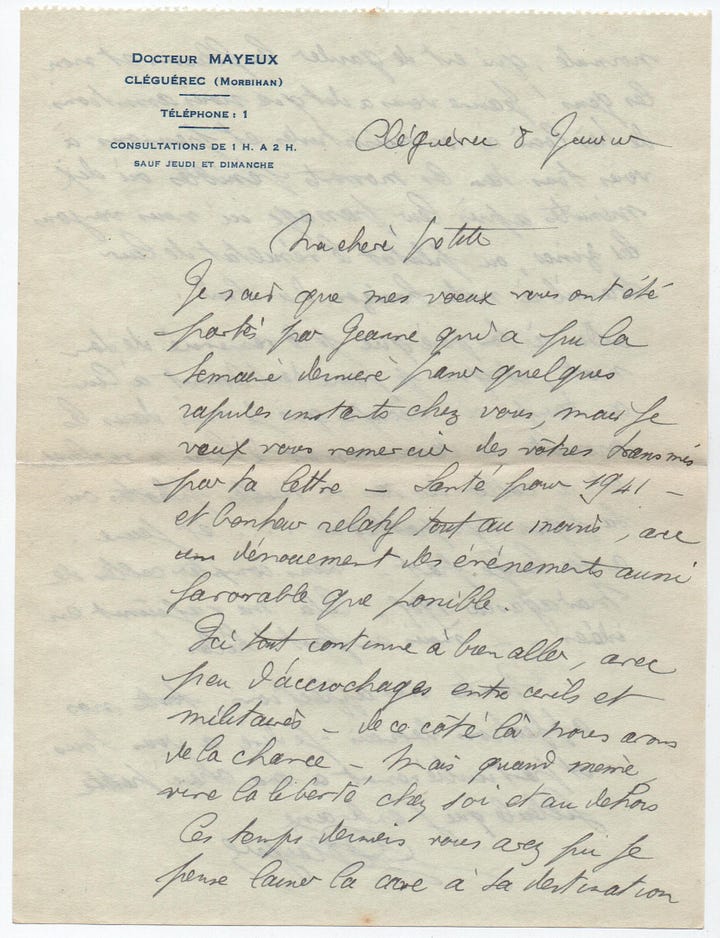 DOCTEUR MAYEUX
CLÉGUÉREC (MORBIHAN)
TÉLÉPHONE : 1
CONSULTATIONS DE 1 H. A 2 H.
SAUF JEUDI ET DIMANCHE
Cléguérec 8 Janvier
Ma chère petite
Je sais que mes voeux vous ont été
portés par Jeanne qui a pu la
semaine dernière passer quelques
rapides instants chez vous, mais je
veux vous remercier des vôtres transmis
par ta lettre — Santé pour 1941 —
et bonheur relatif tout au moins, avec
un dénouement des événements aussi
favorable que possible.
Ici tout continue à bien aller, avec
peu d'accrochages entre civils et
militaires — de ce côté là nous avons
de la chance — Mais quand même,
vive la liberté chez soi et au dehors
Ces temps derniers vous avez pu je
pense laisser la cave à sa destination